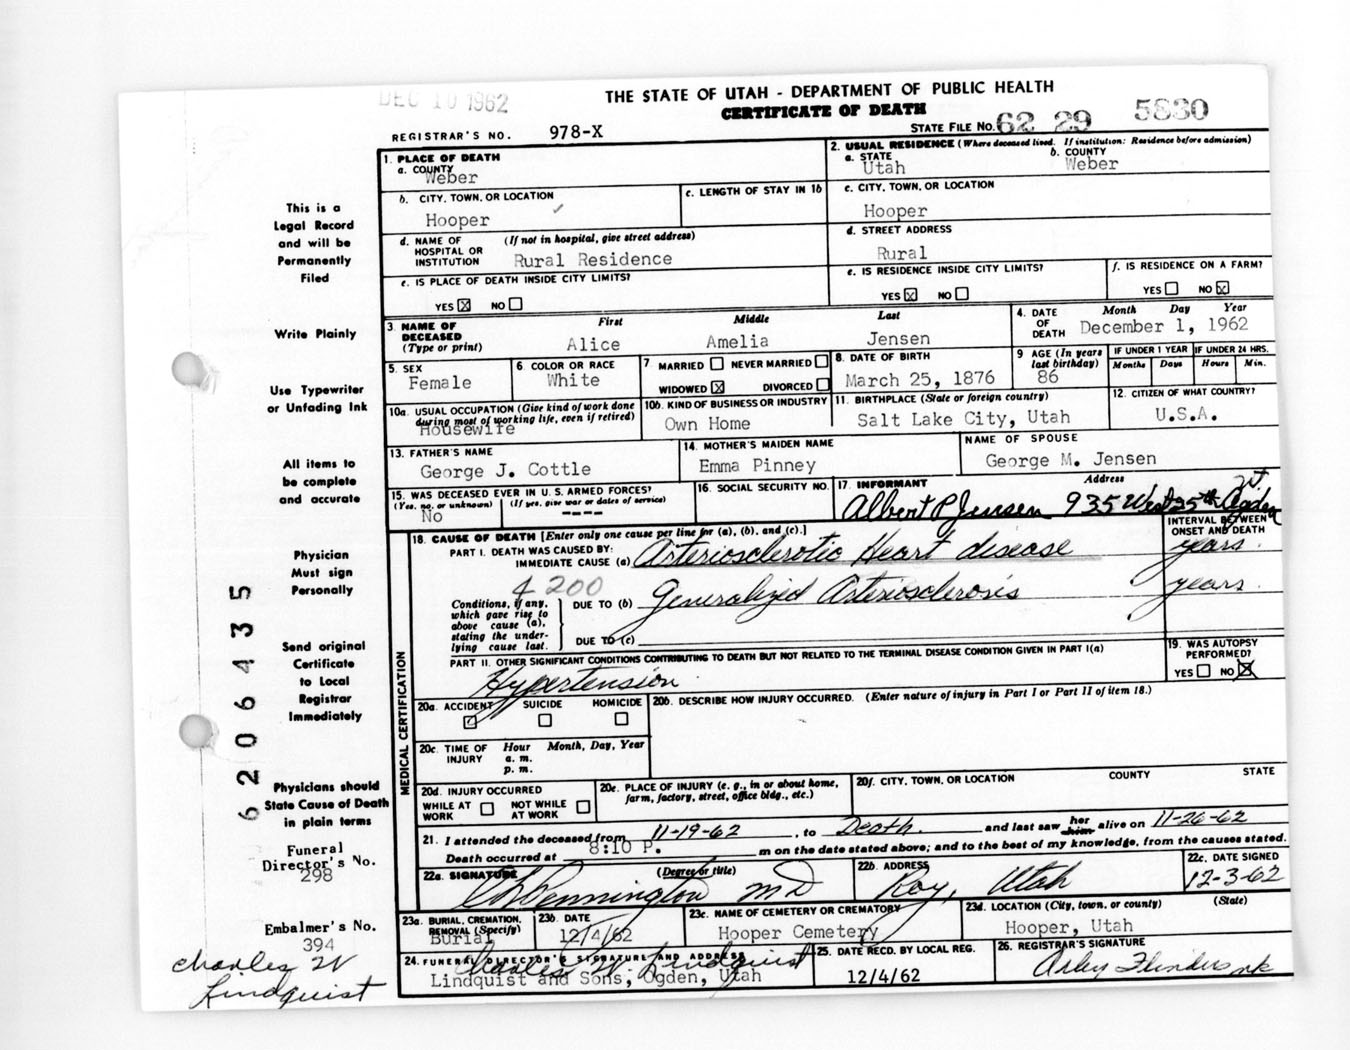 DEC 10 1962
THE STATE OF UTAH - DEPARTMENT OF PUBLIC HEALTH
CERTIFICATE OF DEATH
REGISTRAR'S NO. 978-X
STATE FILE NO. 62 29 5830
1. PLACE OF DEATH
a. COUNTY
Weber
2. USUAL RESIDENCE (Where deceased lived. If institution: Residence before admission)
a. STATE
Utah
b. COUNTY
Weber
b. CITY, TOWN, OR LOCATION
Hooper
c. LENGTH OF STAY IN 1b
c. CITY, TOWN, OR LOCATION
Hooper
d. NAME OF HOSPITAL OR INSTITUTION
(If not in hospital, give street address)
Rural Residence
d. STREET ADDRESS
Rural
e. IS PLACE OF DEATH INSIDE CITY LIMITS?
YES ☒ NO ☐
e. IS RESIDENCE INSIDE CITY LIMITS?
YES ☒ NO ☐
f. IS RESIDENCE ON A FARM?
YES ☐ NO ☒
3. NAME OF DECEASED
(Type or print)
First Middle Last
Alice Amelia Jensen
4. DATE OF DEATH
Month Day Year
December 1, 1962
5. SEX
Female
6. COLOR OR RACE
White
7. MARRIED ☐ NEVER MARRIED ☐
WIDOWED ☒ DIVORCED ☐
8. DATE OF BIRTH
March 25, 1876
9 AGE (In years last birthday)
86
IF UNDER 1 YEAR
Months Days
IF UNDER 24 HRS.
Hours Min.
10a. USUAL OCCUPATION (Give kind of work done during most of working life, even if retired)
Housewife
10b. KIND OF BUSINESS OR INDUSTRY
Own Home
11. BIRTHPLACE (State or foreign country)
Salt Lake City, Utah
12. CITIZEN OF WHAT COUNTRY?
U.S.A.
13. FATHER'S NAME
George J. Cottle
14. MOTHER'S MAIDEN NAME
Emma Pinney
NAME OF SPOUSE
George M. Jensen
15. WAS DECEASED EVER IN U.S. ARMED FORCES?
(Yes, no, or unknown) (If yes, give war or dates of service)
No ----
16. SOCIAL SECURITY NO.
17. INFORMANT Address
Albert P Jensen 935 West 25th Ogden
18. CAUSE OF DEATH [Enter only one cause per line for (a), (b), and (c).]
PART I. DEATH WAS CAUSED BY:
IMMEDIATE CAUSE (a) Arteriosclerotic Heart disease
INTERVAL BETWEEN ONSET AND DEATH
years
4200
Conditions, if any, which gave rise to above cause (a), stating the underlying cause last.
DUE TO (b) Generalized Arteriosclerosis years
DUE TO (c)
PART II. OTHER SIGNIFICANT CONDITIONS CONTRIBUTING TO DEATH BUT NOT RELATED TO THE TERMINAL DISEASE CONDITION GIVEN IN PART I(a)
Hypertension
19. WAS AUTOPSY PERFORMED?
YES ☐ NO ☒
MEDICAL CERTIFICATION
20a. ACCIDENT SUICIDE HOMICIDE
20b. DESCRIBE HOW INJURY OCCURRED. (Enter nature of injury in Part I or Part II of item 18.)
20c. TIME OF INJURY
Hour Month, Day, Year
a. m.
p. m.
20d. INJURY OCCURRED
WHILE AT WORK ☐ NOT WHILE AT WORK ☐
20e. PLACE OF INJURY (e. g., in or about home, farm, factory, street, office bldg., etc.)
20f. CITY, TOWN, OR LOCATION COUNTY STATE
21. I attended the deceased from 11-19-62, to Death. and last saw her him alive on 11-26-62
Death occurred at 8:10 P. m on the date stated above; and to the best of my knowledge, from the causes stated.
22a. SIGNATURE (Degree or title)
Pennington MD
22b. ADDRESS
Roy, Utah
22c. DATE SIGNED
12-3-62
23a. BURIAL, CREMATION, REMOVAL (Specify)
Burial
23b. DATE
12/4/62
23c. NAME OF CEMETERY OR CREMATORY
Hooper Cemetery
23d. LOCATION (City, town, or county) (State)
Hooper, Utah
24. FUNERAL DIRECTOR'S SIGNATURE AND ADDRESS
Charles W. Lindquist
Lindquist and Sons, Ogden, Utah
25. DATE RECD. BY LOCAL REG.
12/4/62
26. REGISTRAR'S SIGNATURE
Flinders
This is a
Legal Record
and will be
Permanently
Filed
Write Plainly
Use Typewriter
or Unfading Ink
All items to
be complete
and accurate
Physician
Must sign
Personally
Send original
Certificate
to Local
Registrar
Immediately
Physicians should
State Cause of Death
in plain terms
Funeral
Director's No.
298
Embalmer's No.
394
Charles W
Lindquist
6206435